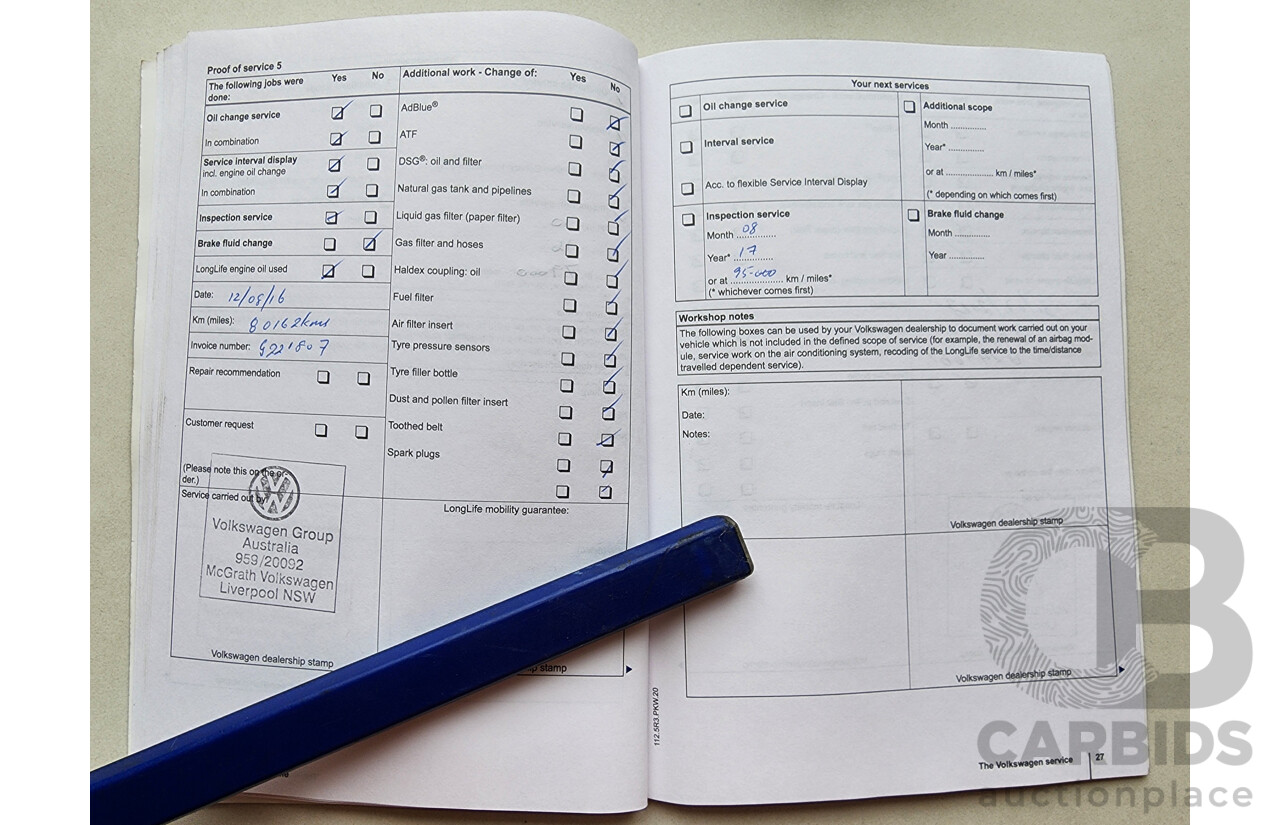 Proof of service 5
The following jobs were done: Yes No
Oil change service
In combination
Service interval display
incl. engine oil change
In combination
Inspection service
Brake fluid change
LongLife engine oil used
Date: 12/08/16
Km (miles): 80162kms
Invoice number: G221807
Repair recommendation
Customer request
(Please note this on the or-
der.)
Service carried out by
Volkswagen Group
Australia
959/20092
McGrath Volkswagen
Liverpool NSW
Volkswagen dealership stamp
Additional work - Change of: Yes No
AdBlue®
ATF
DSG®: oil and filter
Natural gas tank and pipelines
Liquid gas filter (paper filter)
Gas filter and hoses
Haldex coupling: oil
Fuel filter
Air filter insert
Tyre pressure sensors
Tyre filler bottle
Dust and pollen filter insert
Toothed belt
Spark plugs
LongLife mobility guarantee:
stamp
Your next services
Oil change service
Interval service
Acc. to flexible Service Interval Display
Inspection service
Month 08
Year* 17
or at 95-000 km / miles*
(* whichever comes first)
Additional scope
Month ..............
Year* ..............
or at .................... km / miles*
(* depending on which comes first)
Brake fluid change
Month ..............
Year ..............
Workshop notes
The following boxes can be used by your Volkswagen dealership to document work carried out on your
vehicle which is not included in the defined scope of service (for example, the renewal of an airbag mod-
ule, service work on the air conditioning system, recoding of the LongLife service to the time/distance
travelled dependent service).
Km (miles):
Date:
Notes:
Volkswagen dealership stamp
Volkswagen dealership stamp
112.5R3.PKW.20
The Volkswagen service 27
CARBIDS
auctionplace